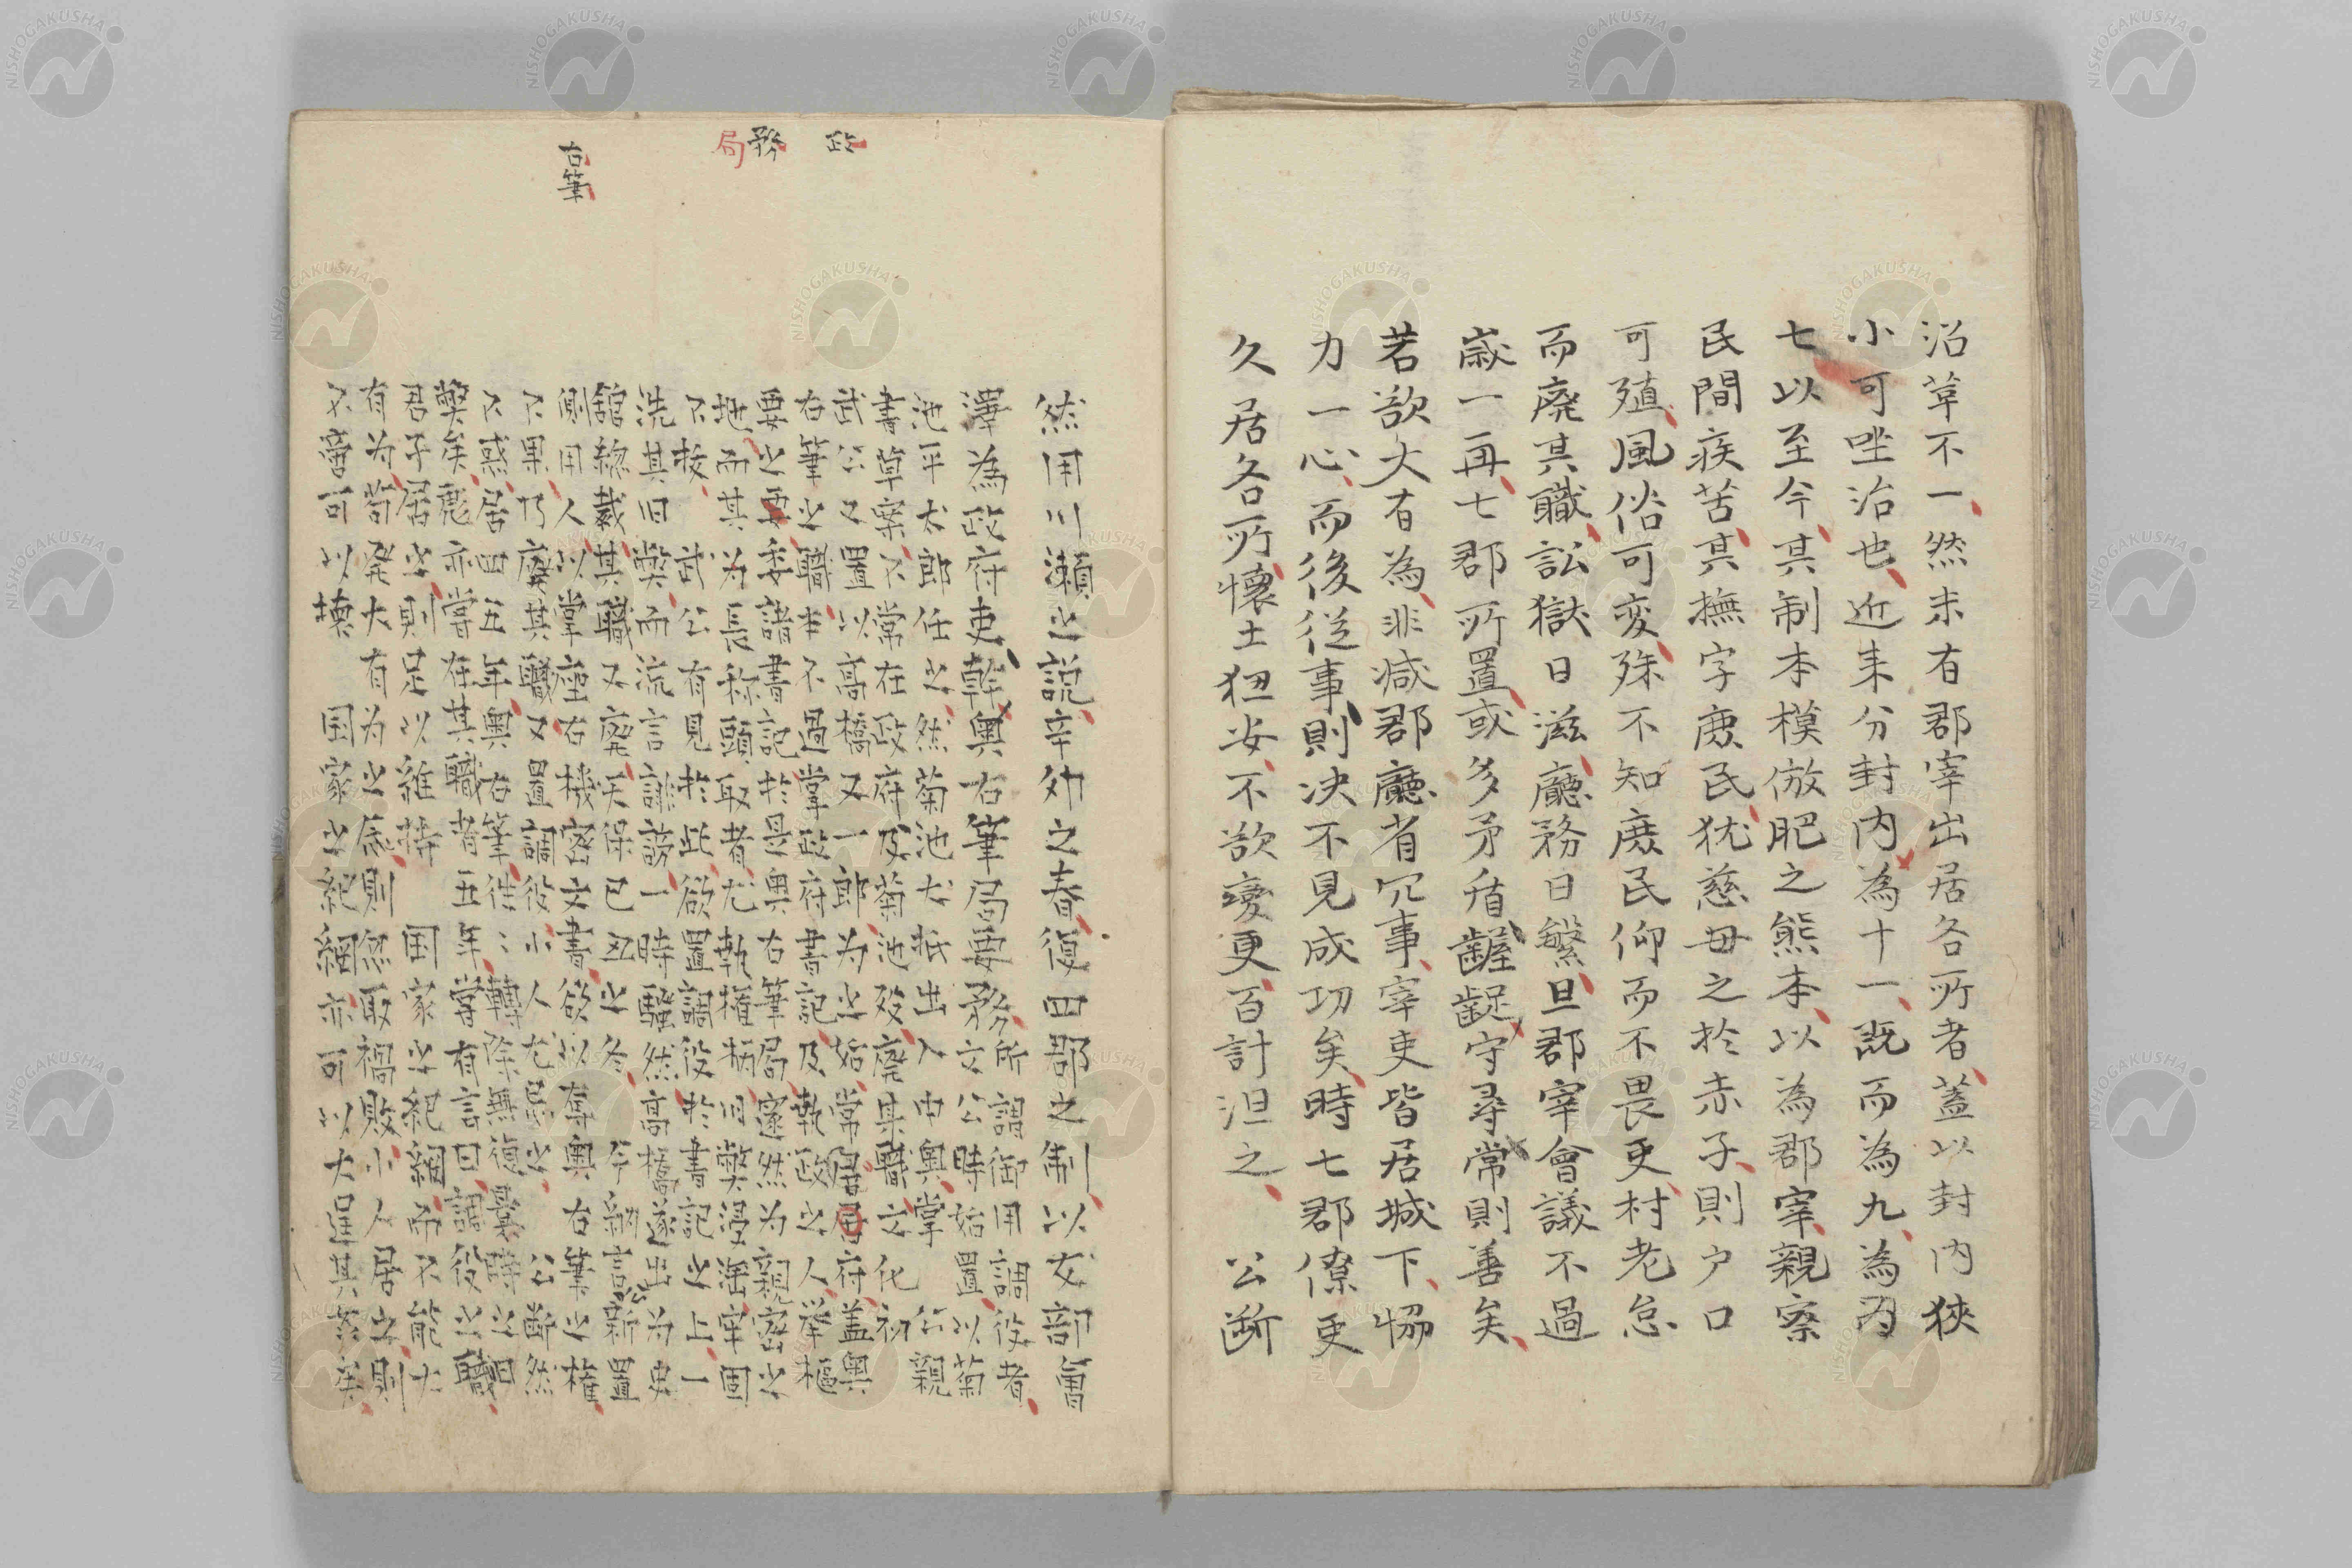 沿革不一然未有郡宰出居各所者蓋以封内狹
小可坐治也近来分封内為十一既而為九為為
七以至今其制本模倣肥之熊本以為郡宰親察
民間疾苦其撫字庶民犹慈母之於赤子則戸口
可殖風俗可変殊不知庶民仰而不畏吏村老怠
而廃其職訟獄日滋廳務日繁且郡宰會議不過
歳一再七郡所置或多矛盾齷齪守尋常則善矣
若欲大有為非減郡廳省冗事宰吏皆居城下恊
力一心而後従事則决不見成功矣時七郡僚吏
久居各所懐土狃安不欲變更百計沮之 公断
然用川瀬之説辛卯之春復四郡之制以友部曾
澤為政府吏幹奥右筆局要務所謂御用調役者
文公時始置以菊
池平太郎任之然菊池大抵出入中奥掌 公親
書草案不常在政府及菊池歿廃其職文化初
武公又置以高橋又一郎為之始常居府蓋奥
右筆之職本不過掌政府書記及執政之人挙樞
要之要委諸書記於是奥右筆局邃然为親密之
地而其为長称頭取者尤執権柄旧弊浸滛牢固
不抜 武公有見於此欲置調役於書記之上一
洗其旧弊而流言誹謗一時騒然高橋遂出为史
舘総裁其職又廃天保己丑之冬 今 納言公新置
側用人以掌座右機密文書欲以奪奥右筆之権
不果乃廃其職又置調役小人尤忌之 公断然
不惑居四五年奥右筆徃〻轉除無復曩時之旧
弊矣彪亦嘗在其職者五年嘗有言曰調役之職
君子居之則足以維持 国家之紀綱而不能大
有为苟発大有为之志則忽取禍敗小人居之則
不啻可以壊 国家之紀綱亦可以大逞其
政
務
局
右筆